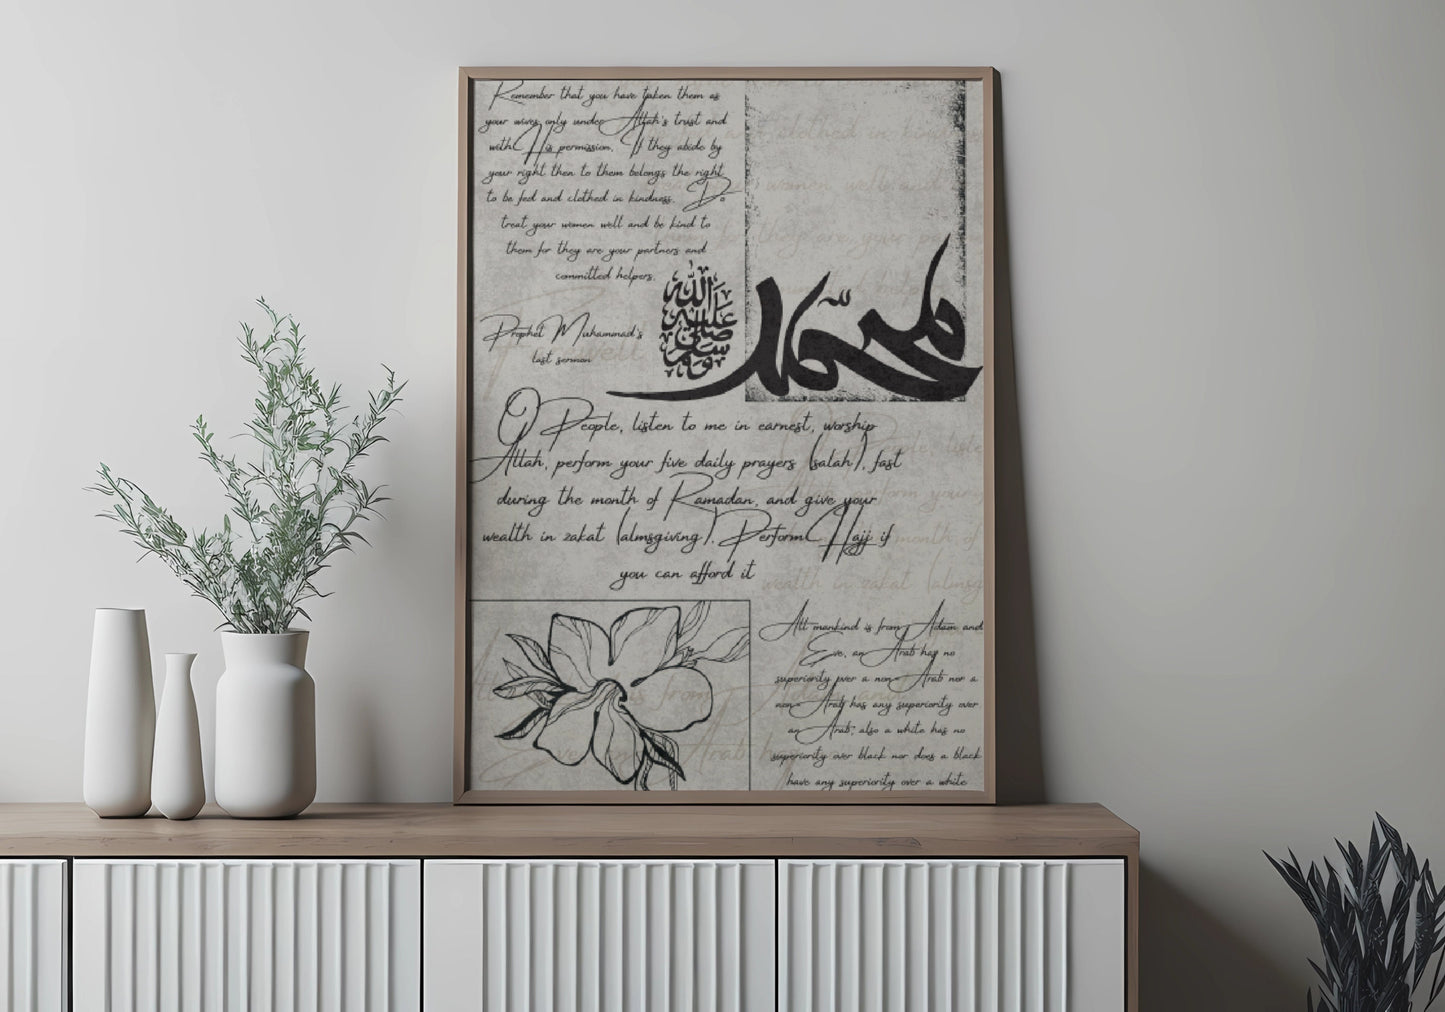 Remember that you have taken them as
your wives only under Allah's trust and
with His permission. If they abide by
your right then to them belongs the right
to be fed and clothed in kindness. Do
treat your women well and be kind to
them for they are your partners and
committed helpers.
Prophet Muhammad's
last sermon
محمد
صلى الله عليه وسلم
O People, listen to me in earnest, worship
Allah, perform your five daily prayers (salah), fast
during the month of Ramadan, and give your
wealth in zakat (almsgiving). Perform Hajj if
you can afford it
All mankind is from Adam and
Eve, an Arab has no
superiority over a non-Arab nor a
non-Arab has any superiority over
an Arab; also a white has no
superiority over black nor does a black
have any superiority over a white